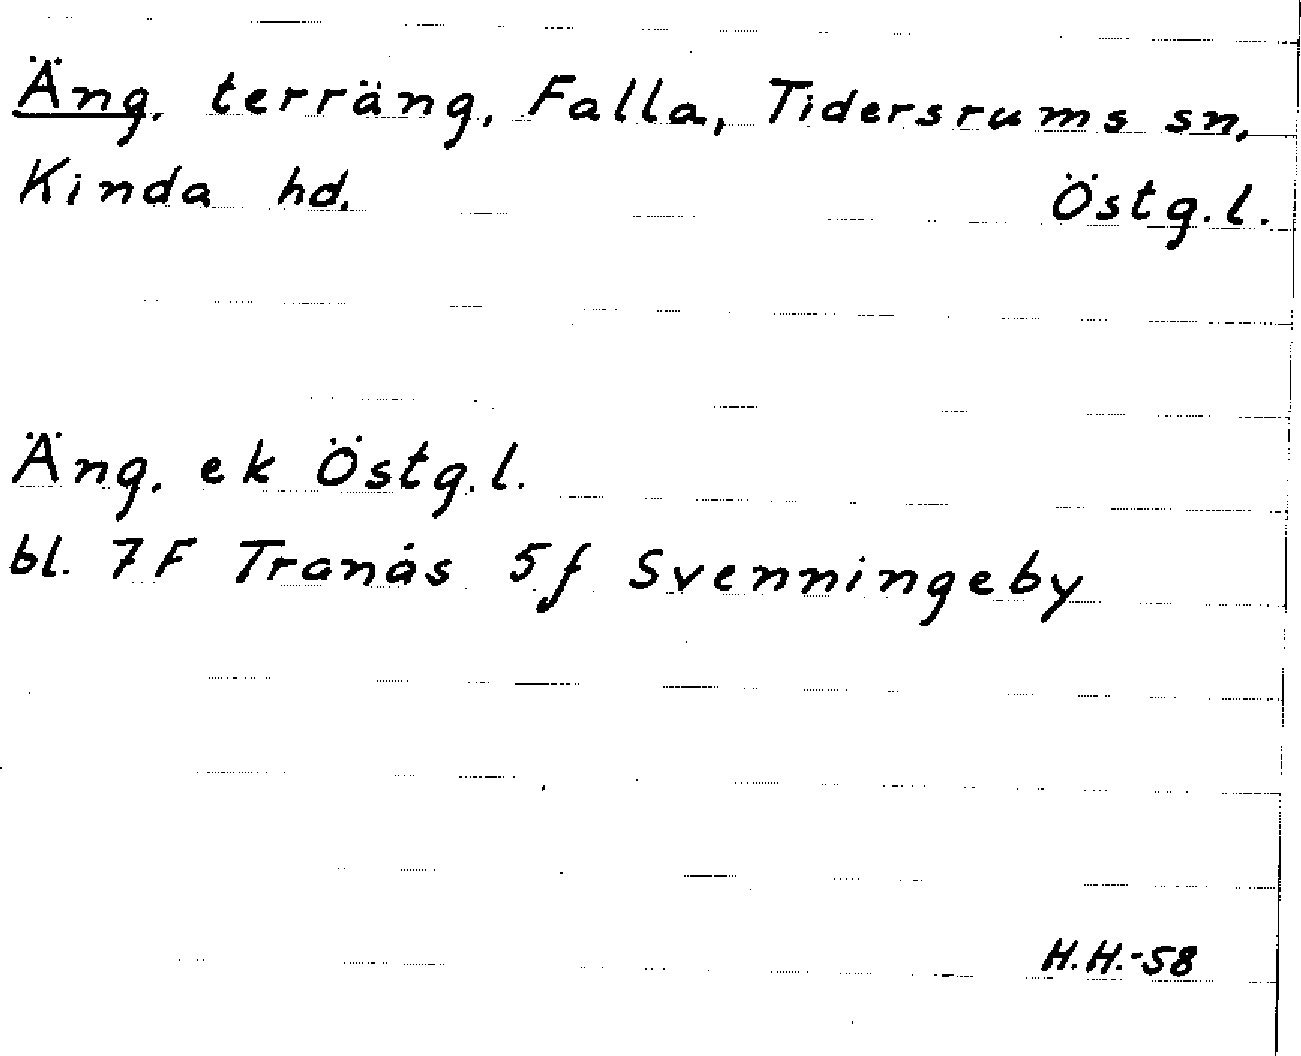 Äng, terräng, Falla, Tidersrums sn,
Kinda hd. Östg.l.
Äng. ek Östg.l.
bl. 7F Tranås 5f Svenningeby
H.H.-58